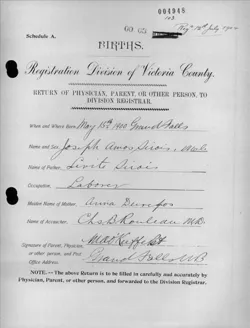 004948
103
Reg 18th July 1900
Schedule A.
BIRTHS.
Registration Division of Victoria County.
RETURN OF PHYSICIAN, PARENT, OR OTHER PERSON, TO
DIVISION REGISTRAR.
When and Where Born, May 15th 1900 Grand Falls
Name and Sex, Joseph Amos Sirois, Male
Name of Father, Sirois
Occupation, Laborer
Maiden Name of Mother, Anna
Name of Accoucheur, Chs. B. Rouleau M.D.
Signature of Parent, Physician,
or other person, and Post
Office Address, Grand Falls N.B.
NOTE. — The above Return is to be filled in carefully and accurately by
Physician, Parent, or other person, and forwarded to the Division Registrar.